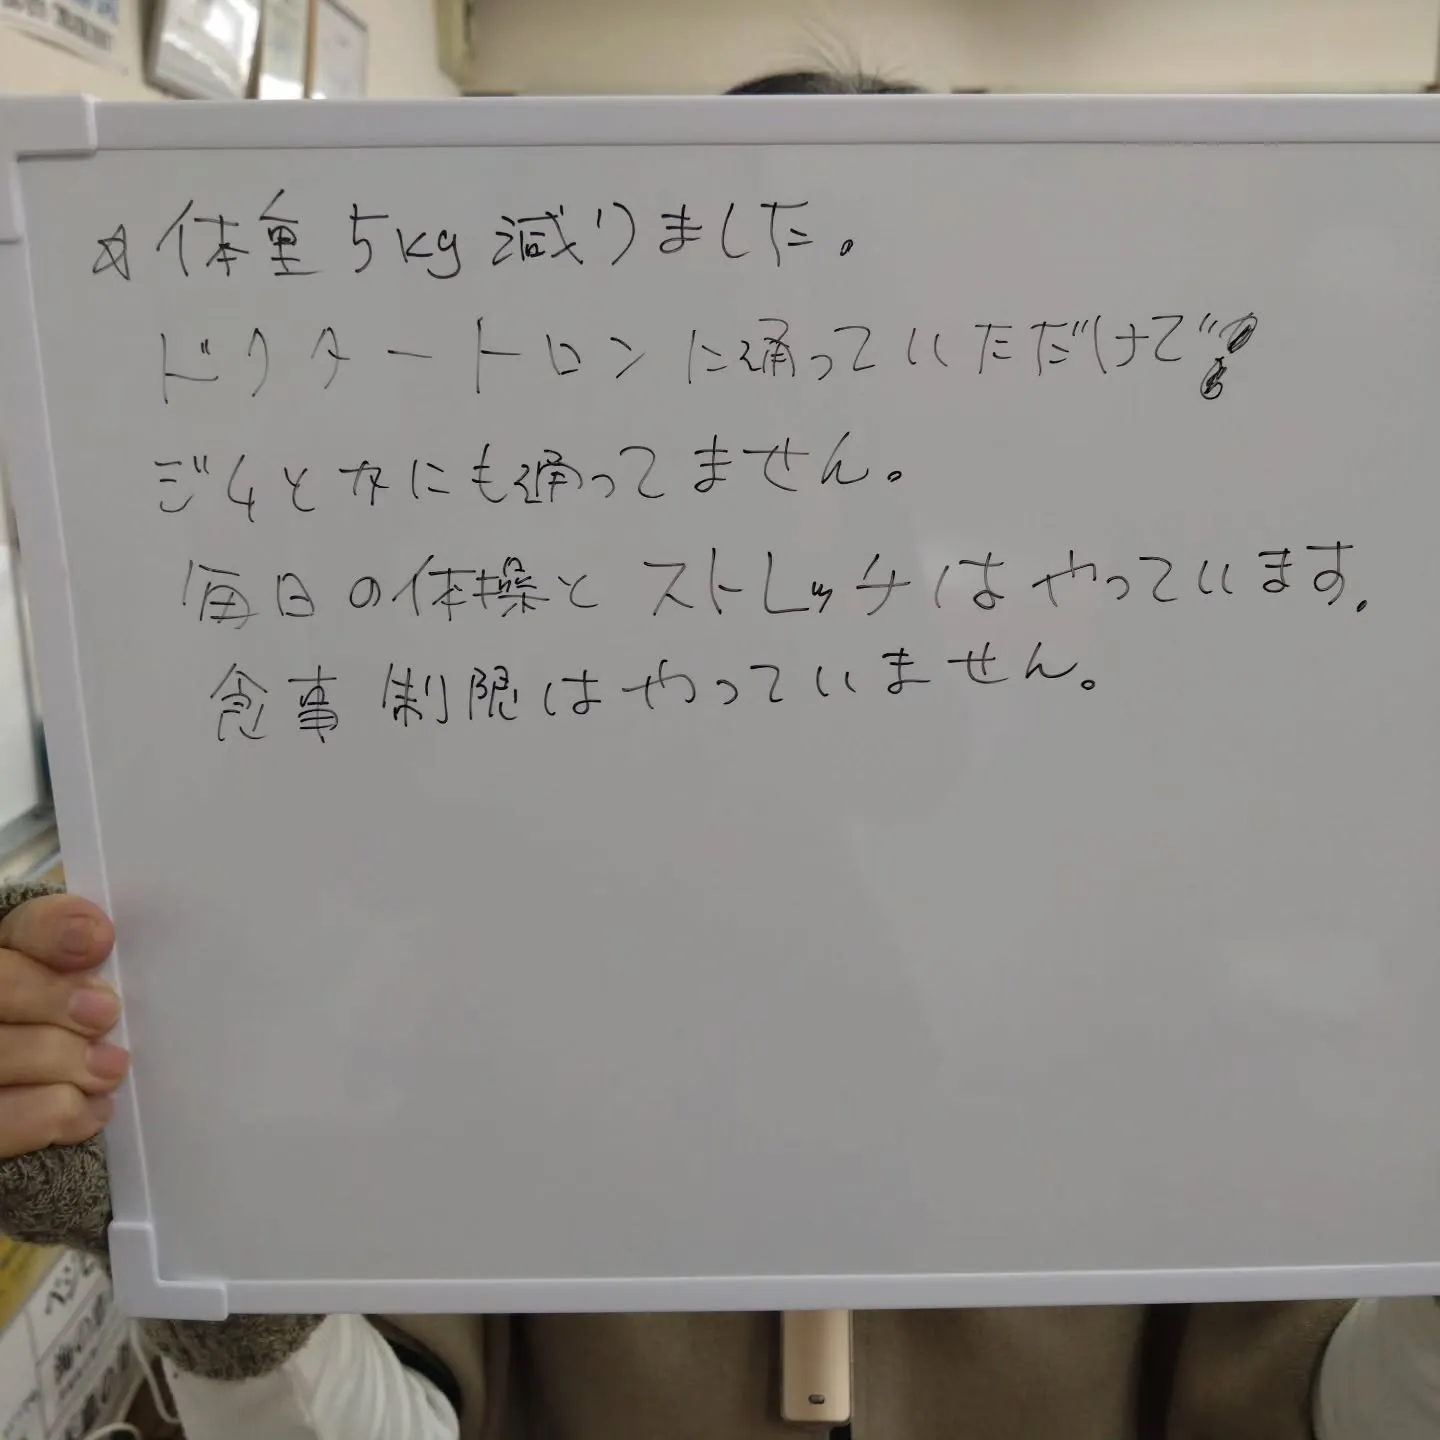 ☆体重5kg減りました。
ドクタートロンに通っていただだけで
ジムとかにも通ってません。
毎日の体操とストレッチはやっています.
食事制限はやっていません。